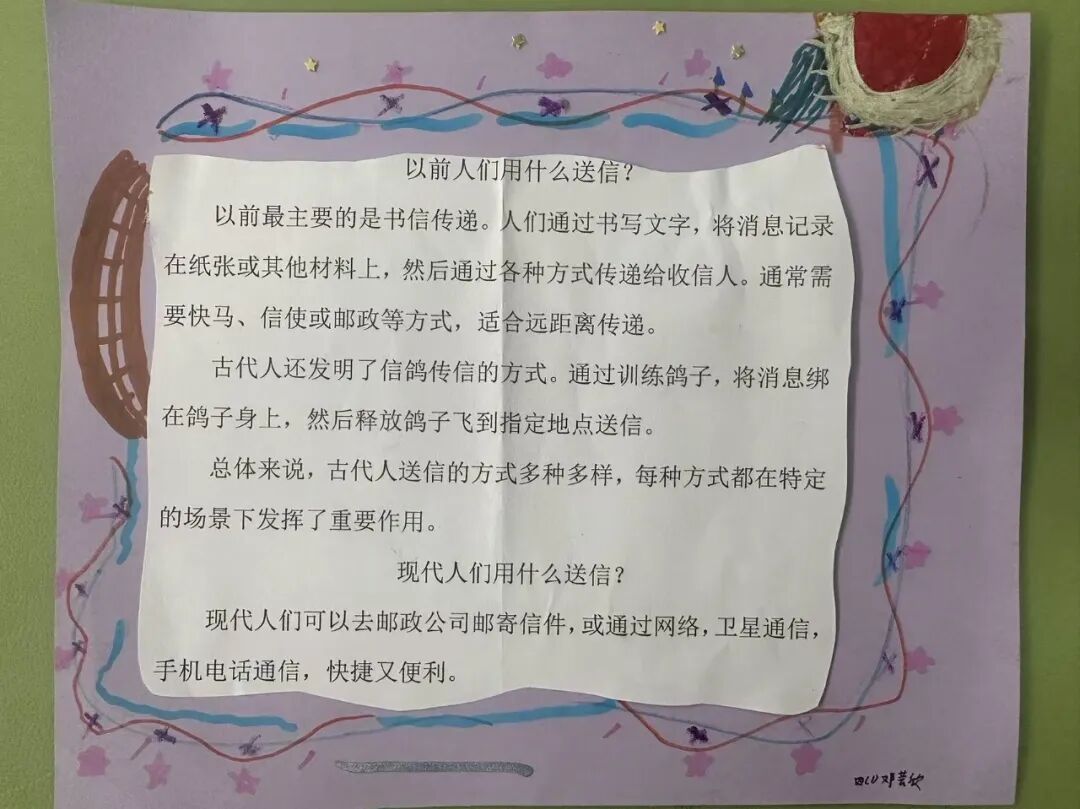 以前人们用什么送信？
以前最主要的是书信传递。人们通过书写文字，将消息记录
在纸张或其他材料上，然后通过各种方式传递给收信人。通常需
要快马、信使或邮政等方式，适合远距离传递。
古代人还发明了信鸽传信的方式。通过训练鸽子，将消息绑
在鸽子身上，然后释放鸽子飞到指定地点送信。
总体来说，古代人送信的方式多种多样，每种方式都在特定
的场景下发挥了重要作用。
现代人们用什么送信？
现代人们可以去邮政公司邮寄信件，或通过网络，卫星通信，
手机电话通信，快捷又便利。
邓芸欣